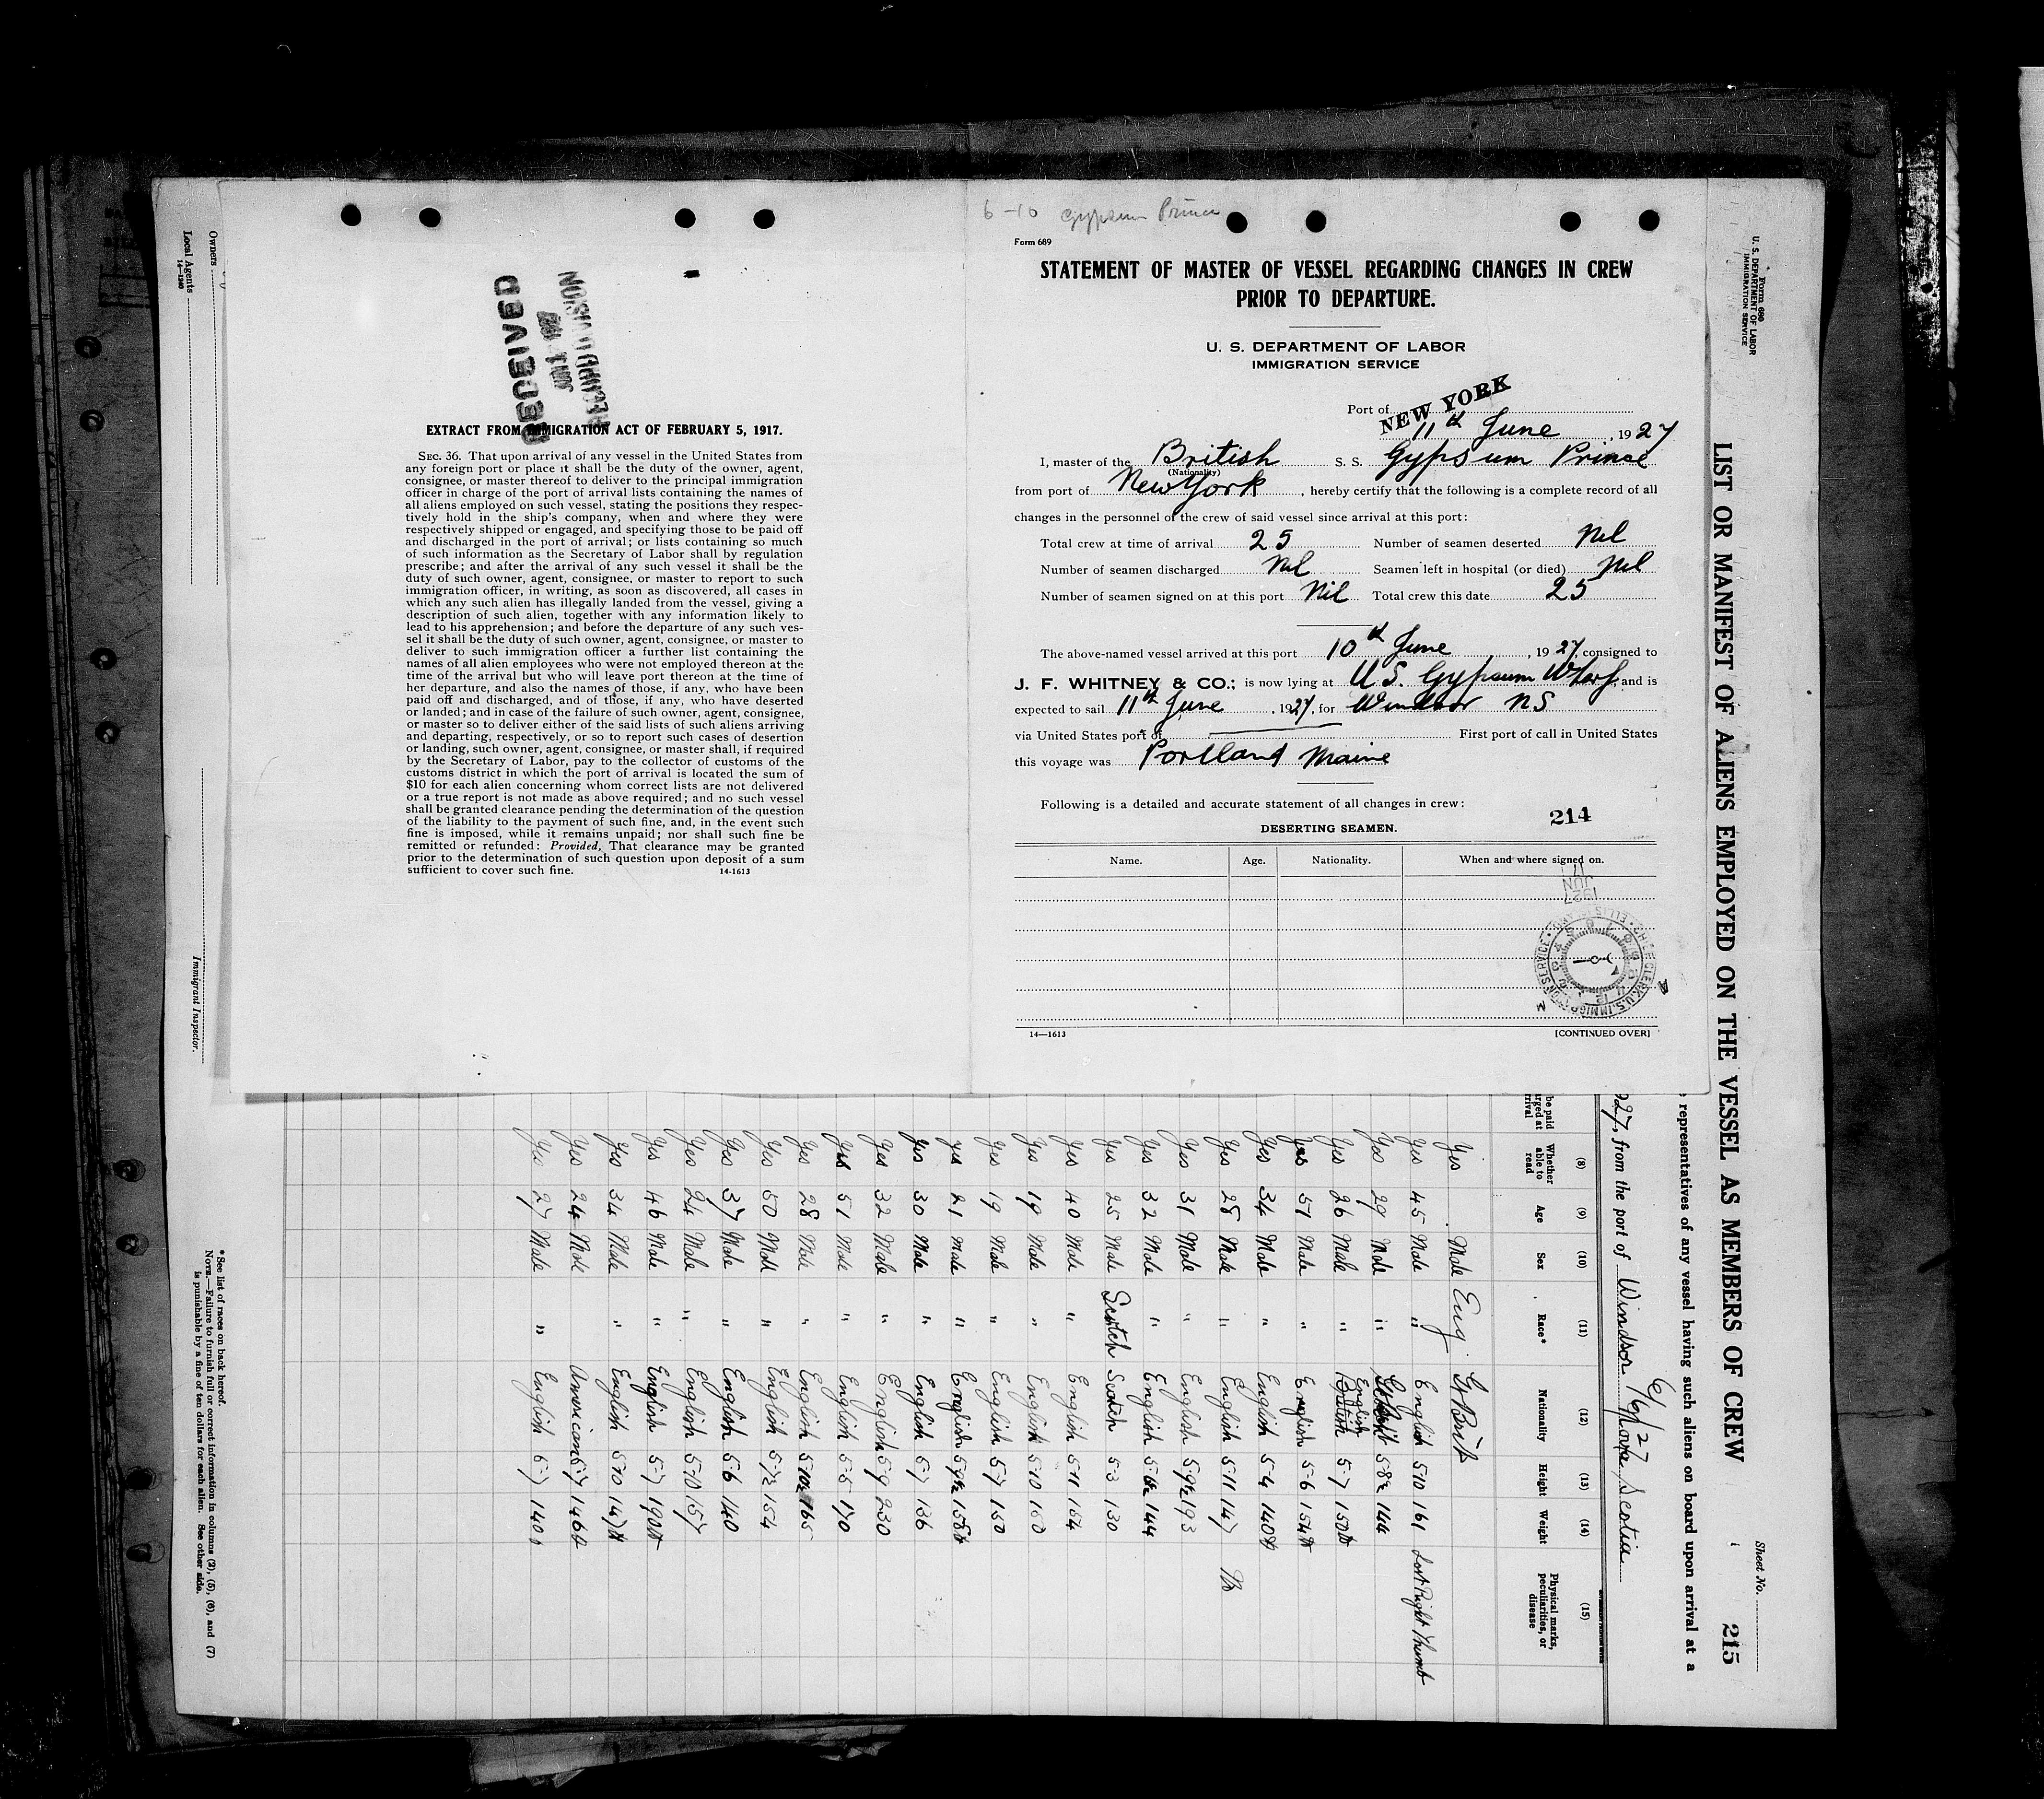 6-10 Gypsum Prince
Form 689
STATEMENT OF MASTER OF VESSEL REGARDING CHANGES IN CREW
PRIOR TO DEPARTURE.
U. S. DEPARTMENT OF LABOR
IMMIGRATION SERVICE
Port of NEW YORK
11th June, 1927
I, master of the British S. S. Gypsum Prince
(Nationality)
from port of New York, hereby certify that the following is a complete record of all
changes in the personnel of the crew of said vessel since arrival at this port:
Total crew at time of arrival 25 Number of seamen deserted Nil
Number of seamen discharged Nil Seamen left in hospital (or died) Nil
Number of seamen signed on at this port Nil Total crew this date 25
The above-named vessel arrived at this port 10th June, 1927, consigned to
J. F. WHITNEY & CO.; is now lying at U.S. Gypsum Wharf, and is
expected to sail 11th June, 1927, for Windsor NS
via United States port of First port of call in United States
this voyage was Portland Maine
Following is a detailed and accurate statement of all changes in crew:
214
DESERTING SEAMEN.
Name. Age. Nationality. When and where signed on.
14—1613 [CONTINUED OVER]
RECEIVED
EXTRACT FROM IMMIGRATION ACT OF FEBRUARY 5, 1917.
SEC. 36. That upon arrival of any vessel in the United States from
any foreign port or place it shall be the duty of the owner, agent,
consignee, or master thereof to deliver to the principal immigration
officer in charge of the port of arrival lists containing the names of
all aliens employed on such vessel, stating the positions they respec-
tively hold in the ship's company, when and where they were
respectively shipped or engaged, and specifying those to be paid off
and discharged in the port of arrival; or lists containing so much
of such information as the Secretary of Labor shall by regulation
prescribe; and after the arrival of any such vessel it shall be the
duty of such owner, agent, consignee, or master to report to such
immigration officer, in writing, as soon as discovered, all cases in
which any such alien has illegally landed from the vessel, giving a
description of such alien, together with any information likely to
lead to his apprehension; and before the departure of any such ves-
sel it shall be the duty of such owner, agent, consignee, or master to
deliver to such immigration officer a further list containing the
names of all alien employees who were not employed thereon at the
time of the arrival but who will leave port thereon at the time of
her departure, and also the names of those, if any, who have been
paid off and discharged, and of those, if any, who have deserted
or landed; and in case of the failure of such owner, agent, consignee,
or master so to deliver either of the said lists of such aliens arriving
and departing, respectively, or so to report such cases of desertion
or landing, such owner, agent, consignee, or master shall, if required
by the Secretary of Labor, pay to the collector of customs of the
customs district in which the port of arrival is located the sum of
$10 for each alien concerning whom correct lists are not delivered
or a true report is not made as above required; and no such vessel
shall be granted clearance pending the determination of the question
of the liability to the payment of such fine, and, in the event such
fine is imposed, while it remains unpaid; nor shall such fine be
remitted or refunded: Provided, That clearance may be granted
prior to the determination of such question upon deposit of a sum
sufficient to cover such fine.
14-1613
Form 680
U. S. DEPARTMENT OF LABOR
IMMIGRATION SERVICE
Sheet No.
215
LIST OR MANIFEST OF ALIENS EMPLOYED ON THE VESSEL AS MEMBERS OF CREW
representatives of any vessel having such aliens on board upon arrival at a
27, from the port of Windsor Nova Scotia
6/6/27
(8) (9) (10) (11) (12) (13) (14) (15)
Whether able to read Age Sex Race* Nationality Height Weight Physical marks, peculiarities, or disease
Yes Male Eng G Brit
Yes 45 Male " English 5-10 161 Lost Right Thumb
Yes 29 Male " 5-8½ 144
Yes 26 Male " English 5-7 150
Yes 51 Male " English 5-6 154
Yes 34 Male " English 5-4 140
Yes 28 Male " English 5-11 147 No
Yes 31 Male " English 5-9½ 193
Yes 32 Male " English 5-6½ 144
Yes 25 Male Scotch Scotch 5-3 130
Yes 40 Male " English 5-11 164
Yes 19 Male " English 5-10 160
Yes 19 Male " English 5-7 150
Yes 21 Male " English 5-9½ 155
Yes 30 Male " English 5-7 136
Yes 32 Male " English 5-9 230
Yes 51 Male " English 5-5 170
Yes 28 Male " English 5-10½ 165
Yes 50 Male " English 5-7½ 154
Yes 37 Male " English 5-6 140
Yes 24 Male " English 5-10 157
Yes 46 Male " English 5-7 190
Yes 34 Male " English 5-10 147
Yes 24 Male American 5-7 146
Yes 27 Male " English 5-7 140
* See list of races on back hereof.
NOTE.—Failure to furnish full or correct information in columns (2), (5), (6), and (7)
is punishable by a fine of ten dollars for each alien. See other side.
Immigrant Inspector.
Owners
Local Agents
14—1240